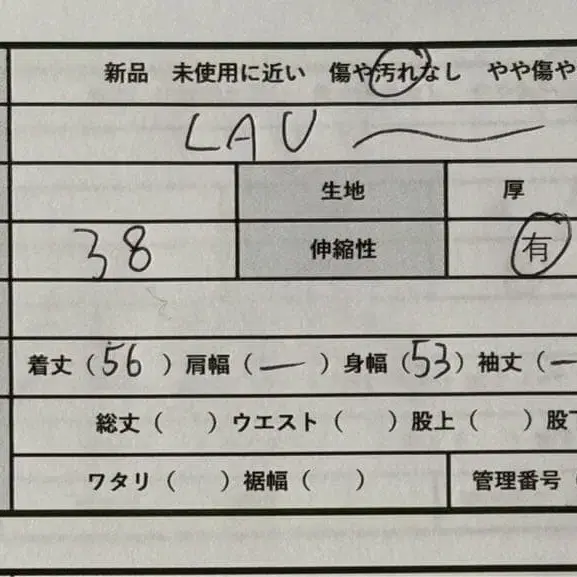 新品 未使用に近い 傷や汚れなし やや傷や
LAU
生地 厚
38 伸縮性 有
着丈（56）肩幅（—）身幅（53）袖丈（—
総丈（ ）ウエスト（ ）股上（ ）股下
ワタリ（ ）裾幅（ ） 管理番号（